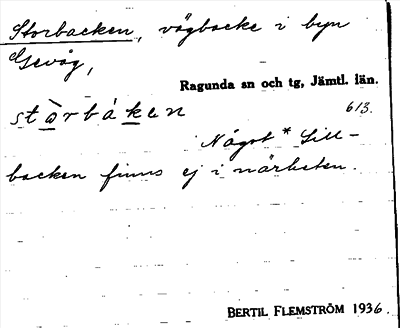 Storbacken, vägbacke i byn
Gevåg,
Ragunda sn och tg, Jämtl. län.
stò̱rbáḵen 613.
Något * Lill-
backen finns ej i närheten.
BERTIL FLEMSTRÖM 1936.